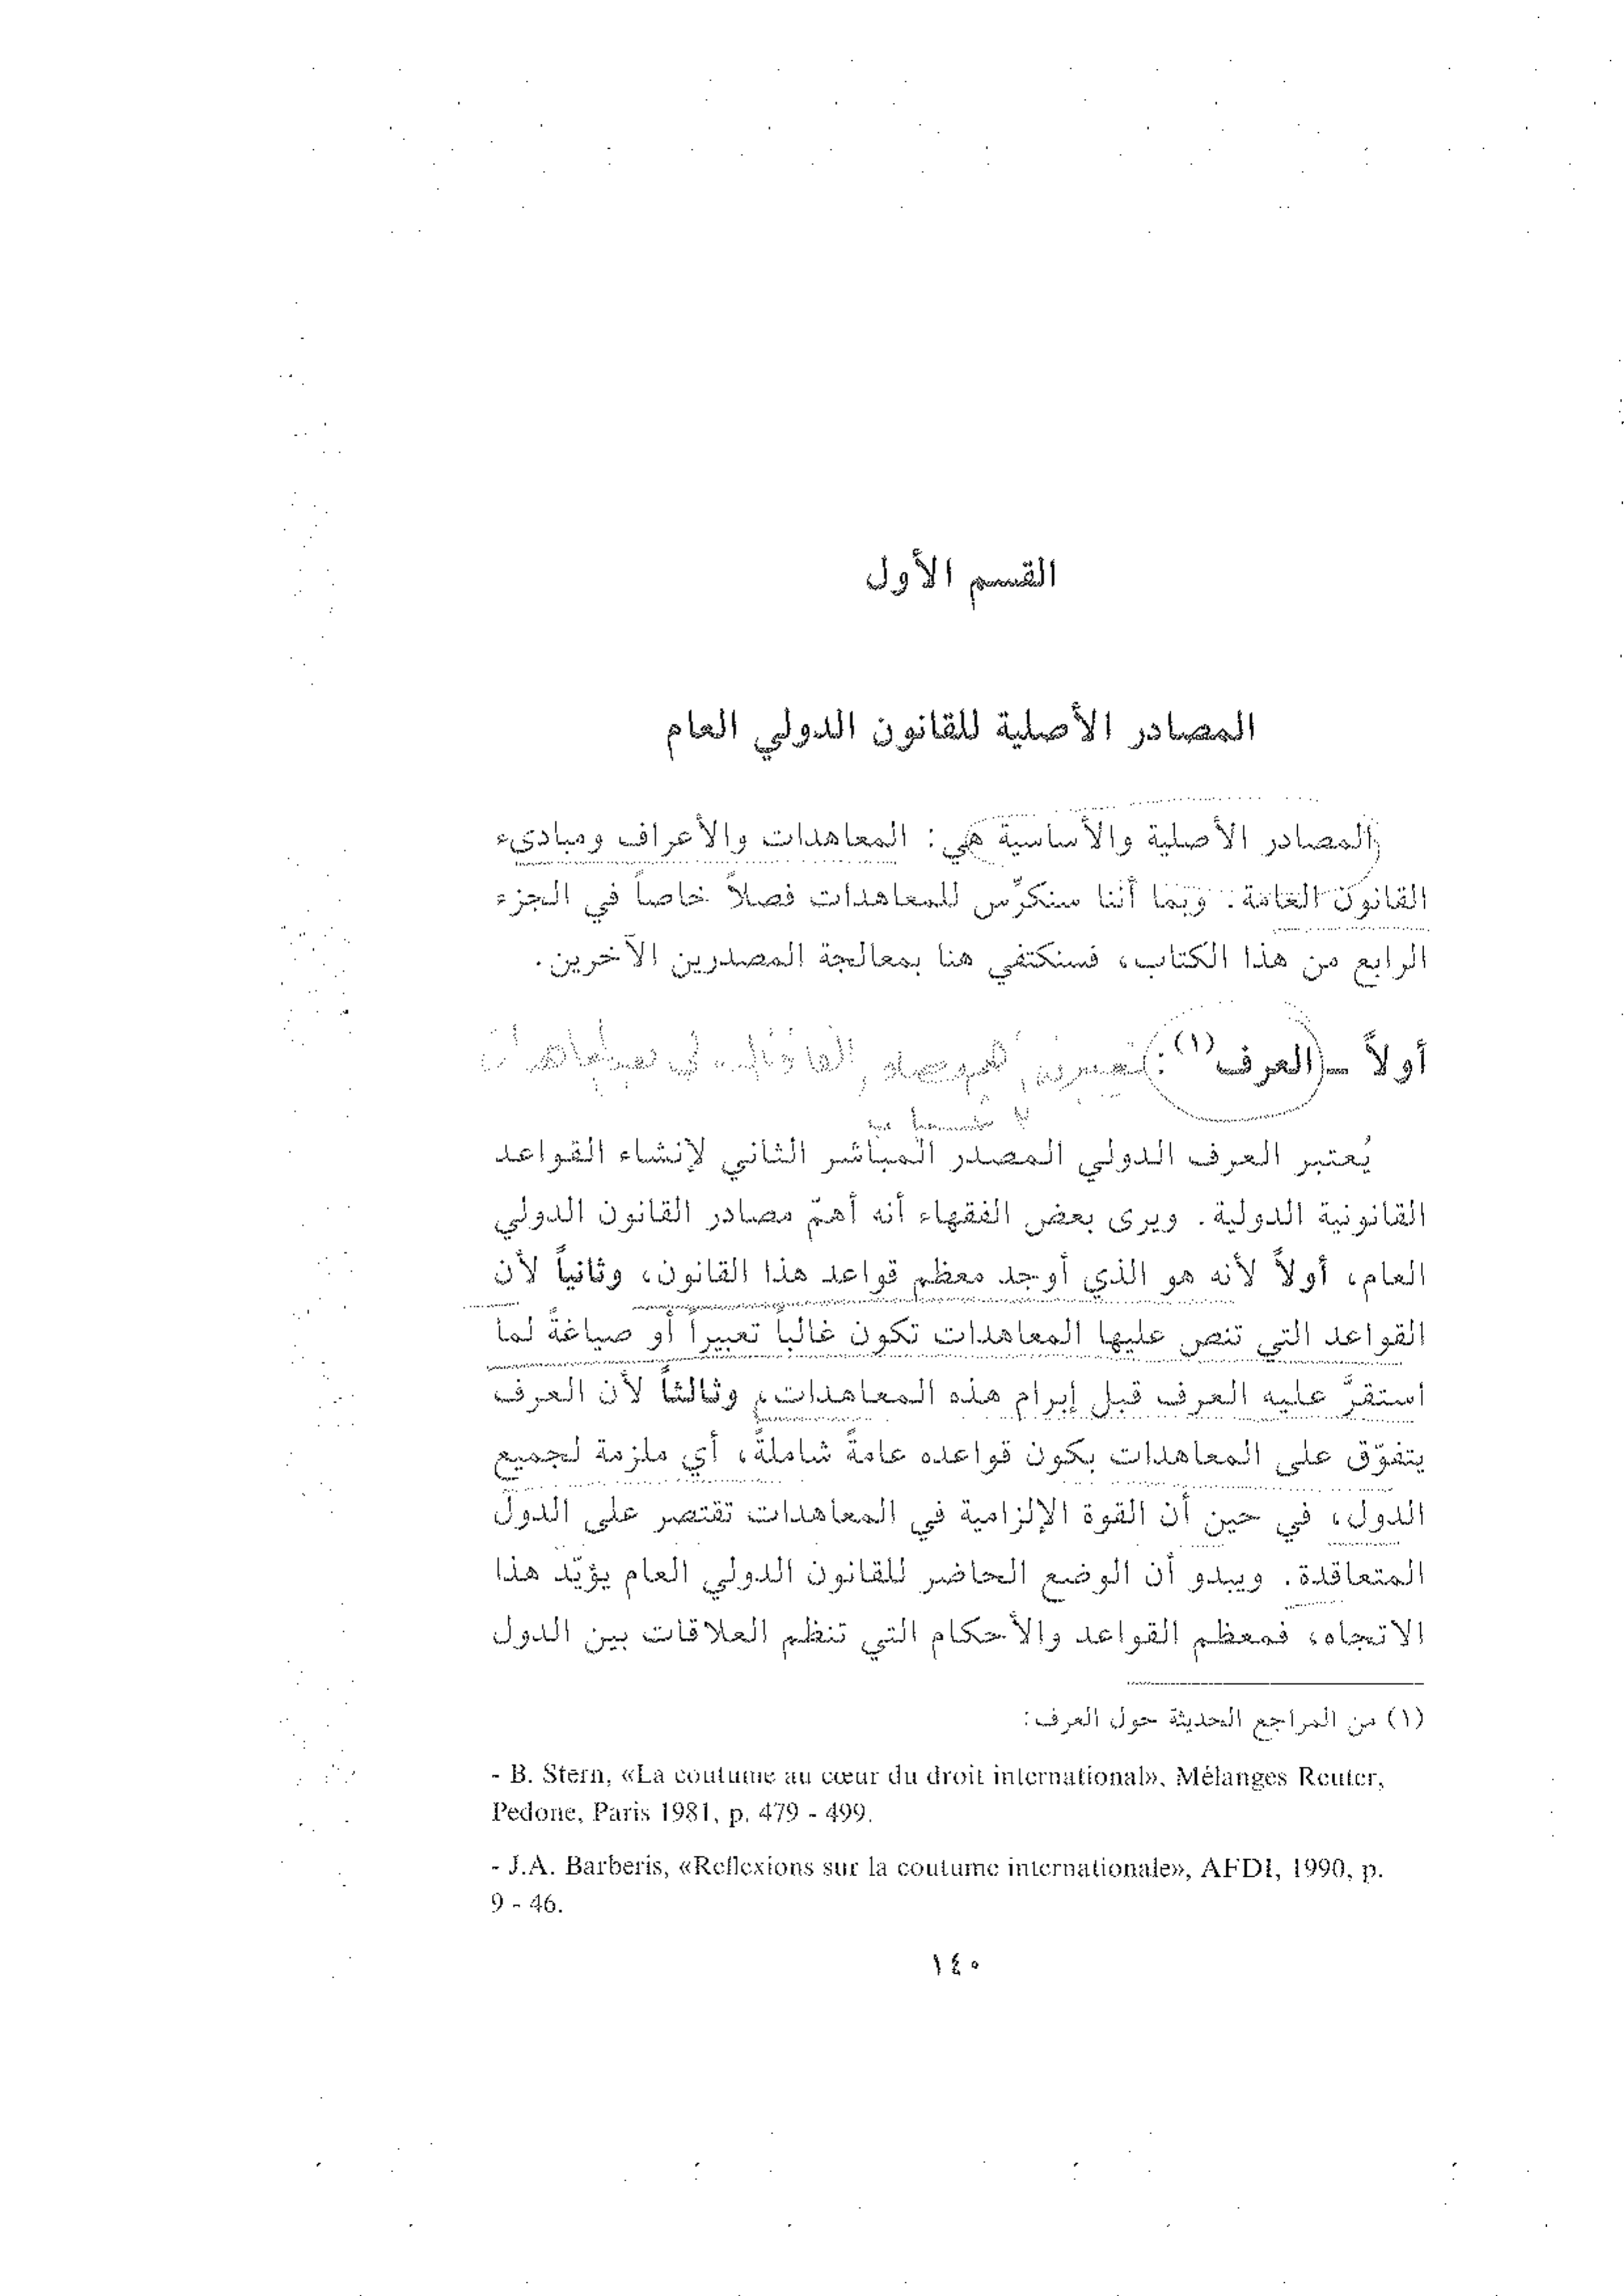 القسم الأول
المصادر الأصلية للقانون الدولي العام
المصادر الأصلية والأساسية هي: المعاهدات والأعراف ومبادىء
القانون العامة. وبما أننا سنكرِّس للمعاهدات فصلاً خاصاً في الجزء
الرابع من هذا الكتاب، فسنكتفي هنا بمعالجة المصدرين الآخرين.
أولاً - (العرف(١):
يُعتبر العرف الدولي المصدر المباشر الثاني لإنشاء القواعد
القانونية الدولية. ويرى بعض الفقهاء أنه أهمّ مصادر القانون الدولي
العام، أولاً لأنه هو الذي أوجد معظم قواعد هذا القانون، وثانياً لأن
القواعد التي تنص عليها المعاهدات تكون غالباً تعبيراً أو صياغةً لما
استقرَّ عليه العرف قبل إبرام هذه المعاهدات، وثالثاً لأن العرف
يتفوّق على المعاهدات بكون قواعده عامةً شاملةً، أي ملزمة لجميع
الدول، في حين أن القوة الإلزامية في المعاهدات تقتصر على الدول
المتعاقدة. ويبدو أن الوضع الحاضر للقانون الدولي العام يؤيّد هذا
الاتجاه، فمعظم القواعد والأحكام التي تنظم العلاقات بين الدول
(١) من المراجع الحديثة حول العرف:
- B. Stern, «La coutume au cœur du droit international», Mélanges Reuter,
Pedone, Paris 1981, p. 479 - 499.
- J.A. Barberis, «Reflexions sur la coutume internationale», AFDI, 1990, p.
9 - 46.
١٤٠